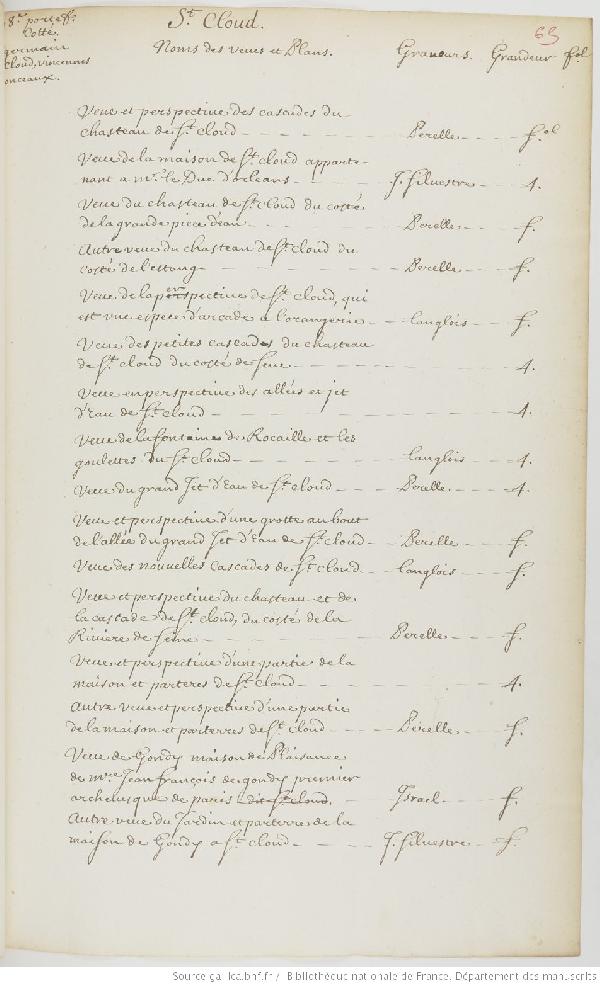 8.e portef.
Cotté
germain
Cloud, vincennes
onceaux.
S.t Cloud.
63
Noms des veues et Plans. Graueurs. Grandeur fol
Veue et perspective des cascades du
chasteau de S.t Cloud Perelle f.ol
Veue de la maison de S.t Cloud apparte-
nant a M.r le Duc d'orleans J. Siluestre 4.
Veue du chasteau de S.t Cloud du costé
de la grande piece d'eau Perelle f.
Autre veue du chasteau de S.t Cloud du
costé de l'estang Perelle f.
Veue de la perspective de S.t Cloud, qui
est vne espece d'arcade a l'orangerie Langlois f.
Veue des petites cascades du chasteau
de S.t Cloud du costé de Seue 4.
Veue en perspective des allées et jet
d'eau de S.t Cloud 4.
Veue de la fontaine de Rocaille et les
goulettes du S.t Cloud Langlois 4.
Veue du grand Jet d'Eau de S.t Cloud Perelle 4.
Veue et perspective d'une grotte au bout
de l'allée du grand Jet d'Eau de S.t Cloud Perelle f.
Veue des nouuelles Cascades de S.t Cloud Langlois f.
Veue et perspective du chasteau et de
la cascade de S.t Cloud, du costé de la
Riviere de Seine Perelle f.
Veue et perspective d'une partie de la
maison et parteres de S.t Cloud 4.
Autre veue et perspective d'une partie
de la maison et parterres de S.t Cloud Perelle f.
Veue de Gondy maison de Plaisance
de M.re Jean françois de gondy premier
archeuesque de paris dit S.t Cloud. Israel f.
Autre veue du Jardin et parterre de la
maison de Gondy a S.t Cloud J. Siluestre f.
Source gallica.bnf.fr / Bibliothèque nationale de France, Département des manuscrits